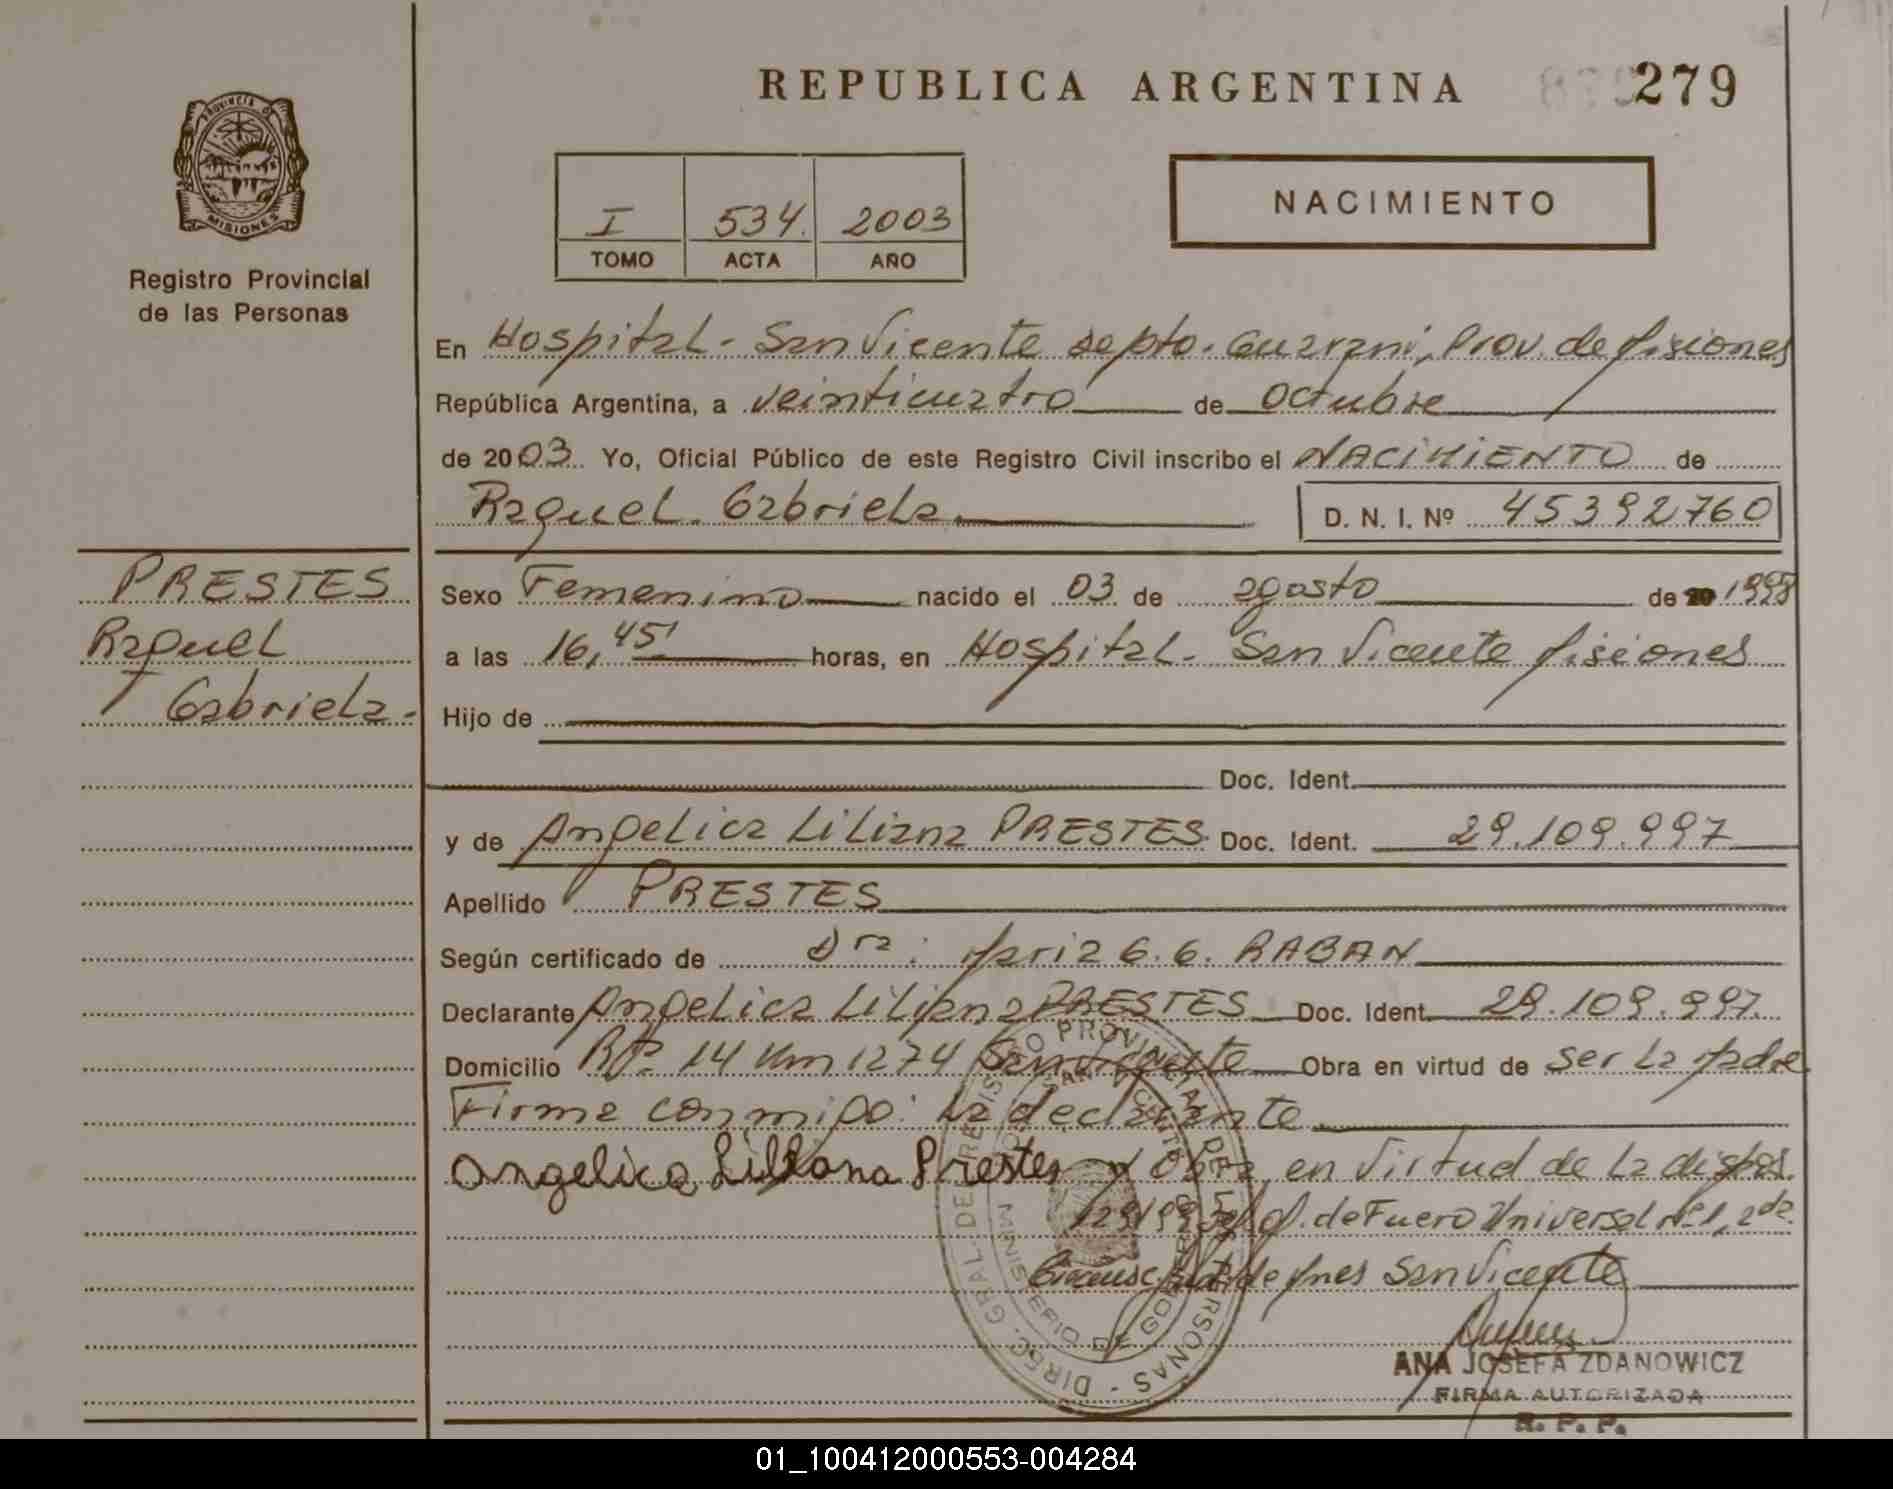 REPUBLICA ARGENTINA
279
PROVINCIA DE
MISIONES
Registro Provincial
de las Personas
I 534. 2003
TOMO ACTA AÑO
NACIMIENTO
En Hospital - San Vicente Depto. Guarani, Prov. de Misiones
República Argentina, a veinticuatro de octubre
de 2003 Yo, Oficial Público de este Registro Civil inscribo el NACIMIENTO de
Raquel Gabriela D. N. I. Nº 45392760
PRESTES
Raquel
Gabriela.-
Sexo Femenino nacido el 03 de agosto de 20 1998
a las 16,45' horas, en Hospital - San Vicente Misiones
Hijo de
Doc. Ident.
y de Angelica Liliana PRESTES Doc. Ident. 29.109.997
Apellido PRESTES
Según certificado de Dra: Maria G. G. RABAN
Declarante Angelica Liliana PRESTES Doc. Ident. 29.109.997.
Domicilio 14 Km 1274 San Vicente Obra en virtud de ser la Madre
Firma conmigo: la declarante
Angelica Liliana Prestes y Obra en virtud de la
de Fuero Universal nº 1, 2da.
de Mnes San Vicente
DIREC. GRAL. DE REGISTRO PROVINCIAL DE LAS PERSONAS
SAN VICENTE
MINISTERIO DE GOBIERNO
ANA JOSEFA ZDANOWICZ
FIRMA AUTORIZADA
R. P. P.
01_100412000553-004284